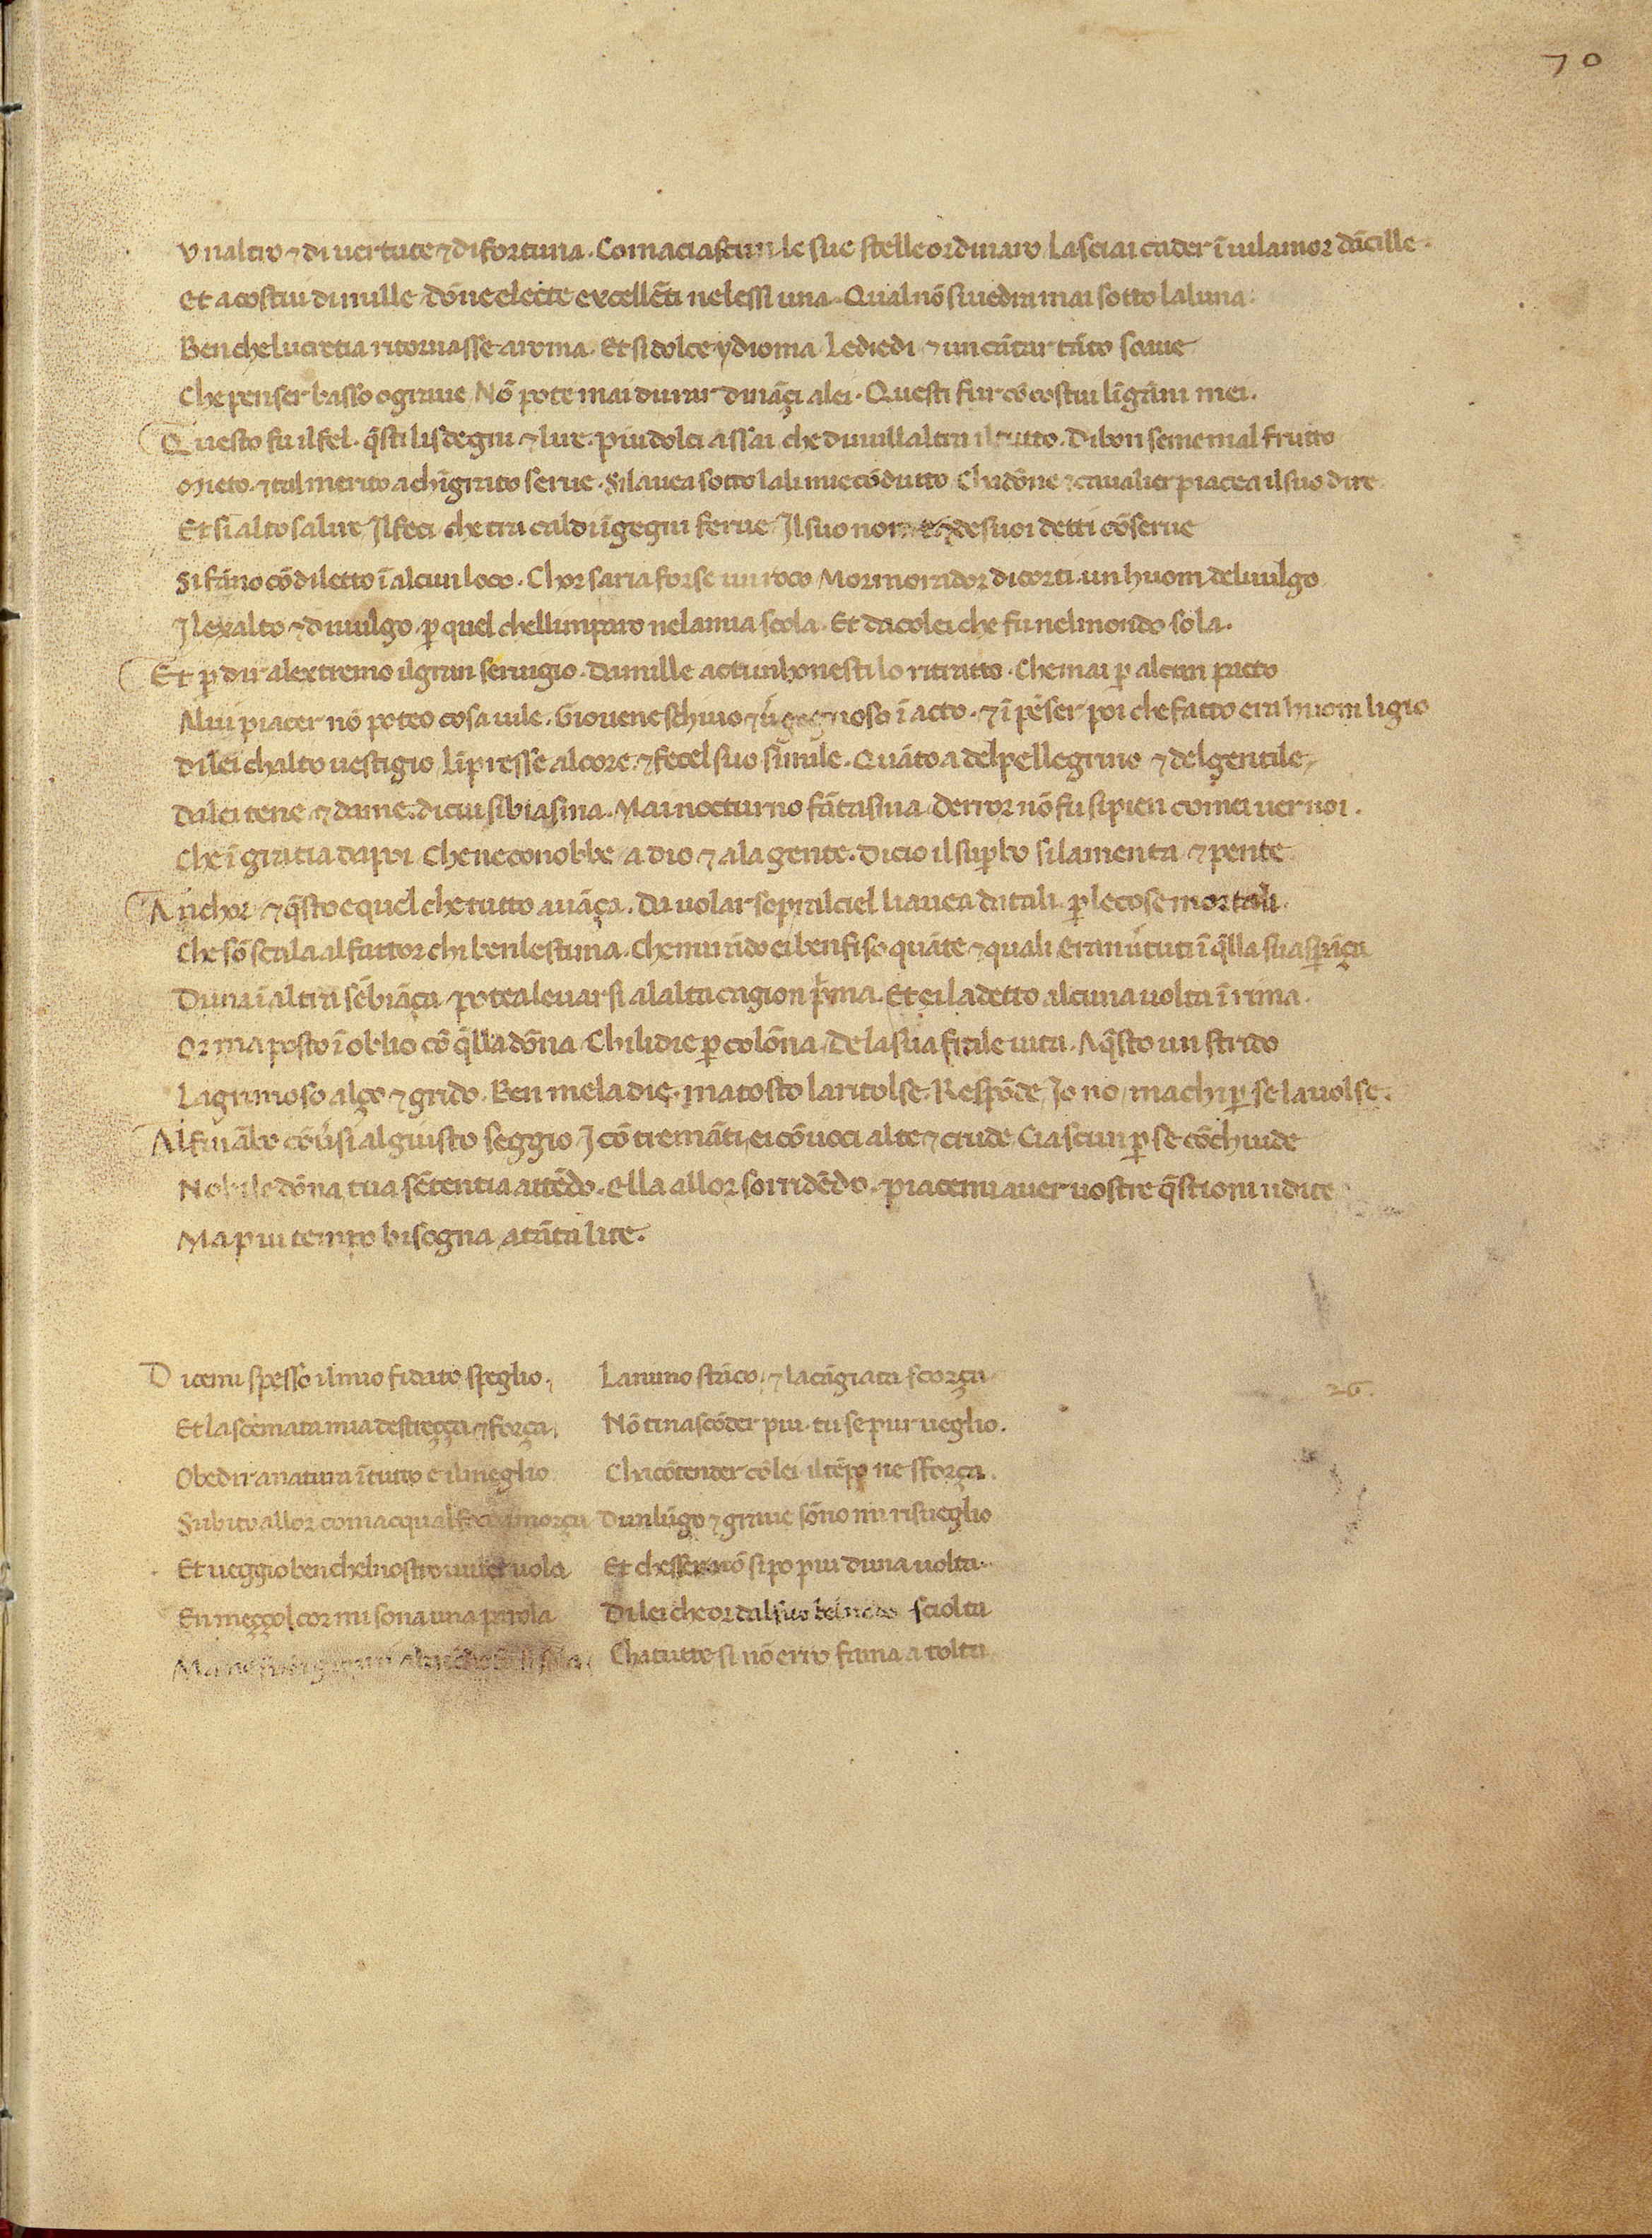 70
Vnaltro ⁊ di uertute ⁊ di fortuna . Comaciascun le sue stelle ordinaro Lasciai cader ī uil amor dācille .
Et a costui di mille dōne electe excellēti nelessi una . Qual nō si uedra mai sotto la luna
Ben che lucretia ritornasse a roma . Et si dolce ydioma Le diedi ⁊ un cātar tāto soaue
Che penser basso o graue Nō pote mai durar dināçi a lei . Questi fur cō costui līgāni mei .
Questo fu il fel . q̄sti li sdegni ⁊ lire . piu dolci assai che di nullaltra il tutto . Di bon seme mal frutto
Mieto . ⁊ tal merito a chī grato serue . Si lauea sotto lali mie cōdutto Cha dōne ⁊ caualier piacea il suo dire
Et si alto salire Il feci che tra caldi īgegni ferue Il suo nome ⁊ de suoi detti cōserue
Si fāno cō diletto ī alcun loco . Chor saria forse un roco Mormorador di corti . un huom del uulgo
Il exalto ⁊ diuulgo . ꝑ quel chelli mparo nela mia scola . Et da colei che fu nel mondo sola .
Et ꝑ dir alextremo il gran seruigio . Da mille acti inhonesti lo ritratto . Che mai ꝑ alcun pacto
A lui piacer nō poteo cosa uile . Giouene schiuo ⁊ ù gognoso ī acto . ⁊ ī pēser poi che fatto era huom ligio
Di lei chalto uestigio Līpresse al core . ⁊ fecel suo simile . Quāto a del pellegrino ⁊ del gentile
Da lei tene ⁊ da me . di cui si biasma . Mai nocturno fātasma Derror nō fu si pien comei uer noi .
Che ī gratia da poi Che ne conobbe / a dio ⁊ ala gente . Di cio il suꝑbo si lamenta ⁊ pente
Anchor . ⁊ q̄sto e quel che tutto auāça . Da uolar sopral ciel li auea dat ali . ꝑ le cose mortali
Che sō scala al fattor chi ben lestima . Che mirādo ei ben fiso quāte ⁊ quali Eran ùtuti ī q̄lla sua sꝑāça
Duna ī altra sēbiāça potea leuarsi alalta cagion p̍ma . Et ei la detto alcuna uolta ī rima .
Or ma posto ī oblio cō q̄lla dōna Chi li die ꝑ colōna De la sua fraile uita . A q̄sto un strido
Lagrimoso alço ⁊ grido . Ben me la die . ma tosto la ritolse . Respōde Io no / ma chi ꝑ se la uolse .
Alfin ābo cōùsi al giusto seggio I cō tremāti ei cō uoci alte ⁊ crude Ciascun ꝑ se cōchiude
Nobile dōna tua sētentia attēdo . Ella allor sorridēdo . piacemi auer uostre q̄stioni udite
Ma piu tempo bisogna a tāta lite .
Dicemi spesso il mio fidato speglio . Lanimo stāco . ⁊ la cāgiata scorça
26 .
Et la scemata mia destreçça ⁊ força . Nō ti nascōder piu . tu se pur ueglio .
Obedir a natura ī tutto e il meglio Cha cōtender cō lei il tēpo ne sforça .
Subito allor com acqual foco amorça Dun lūgo ⁊ graue sōno mi risueglio
Et ueggio ben chel nostro uiuer uola Et chesser nō si po piu duna uolta .
En meççol cor mi sona una parola Di lei che or dal suo bel nodo sciolta
Cha tutte si nō erro fama a tolta